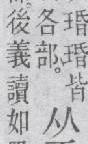 瑉瑉皆
各部。
从
後義讀如